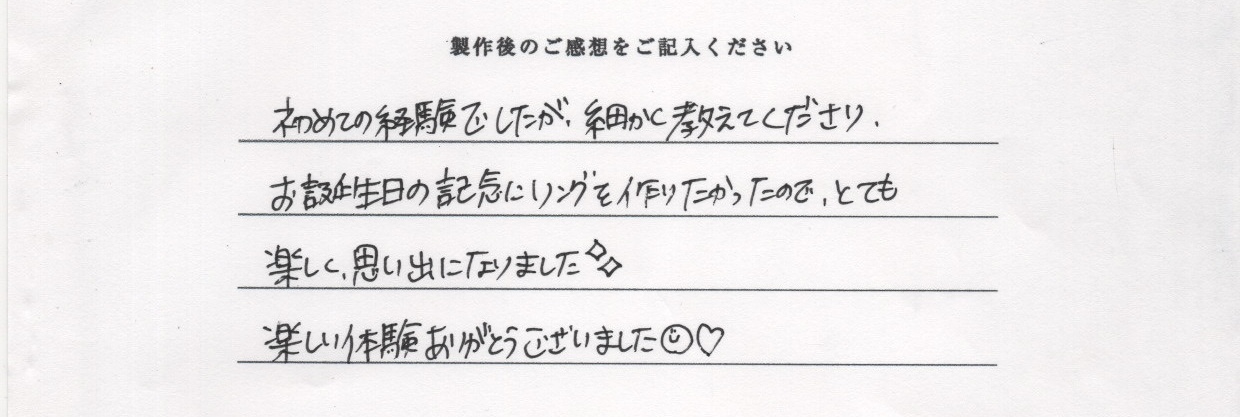 製作後のご感想をご記入ください
初めての経験でしたが、細かく教えてくださり、
お誕生日の記念にリングを作りたかったので、とても
楽しく、思い出になりました✨
楽しい体験ありがとうございました☺♡